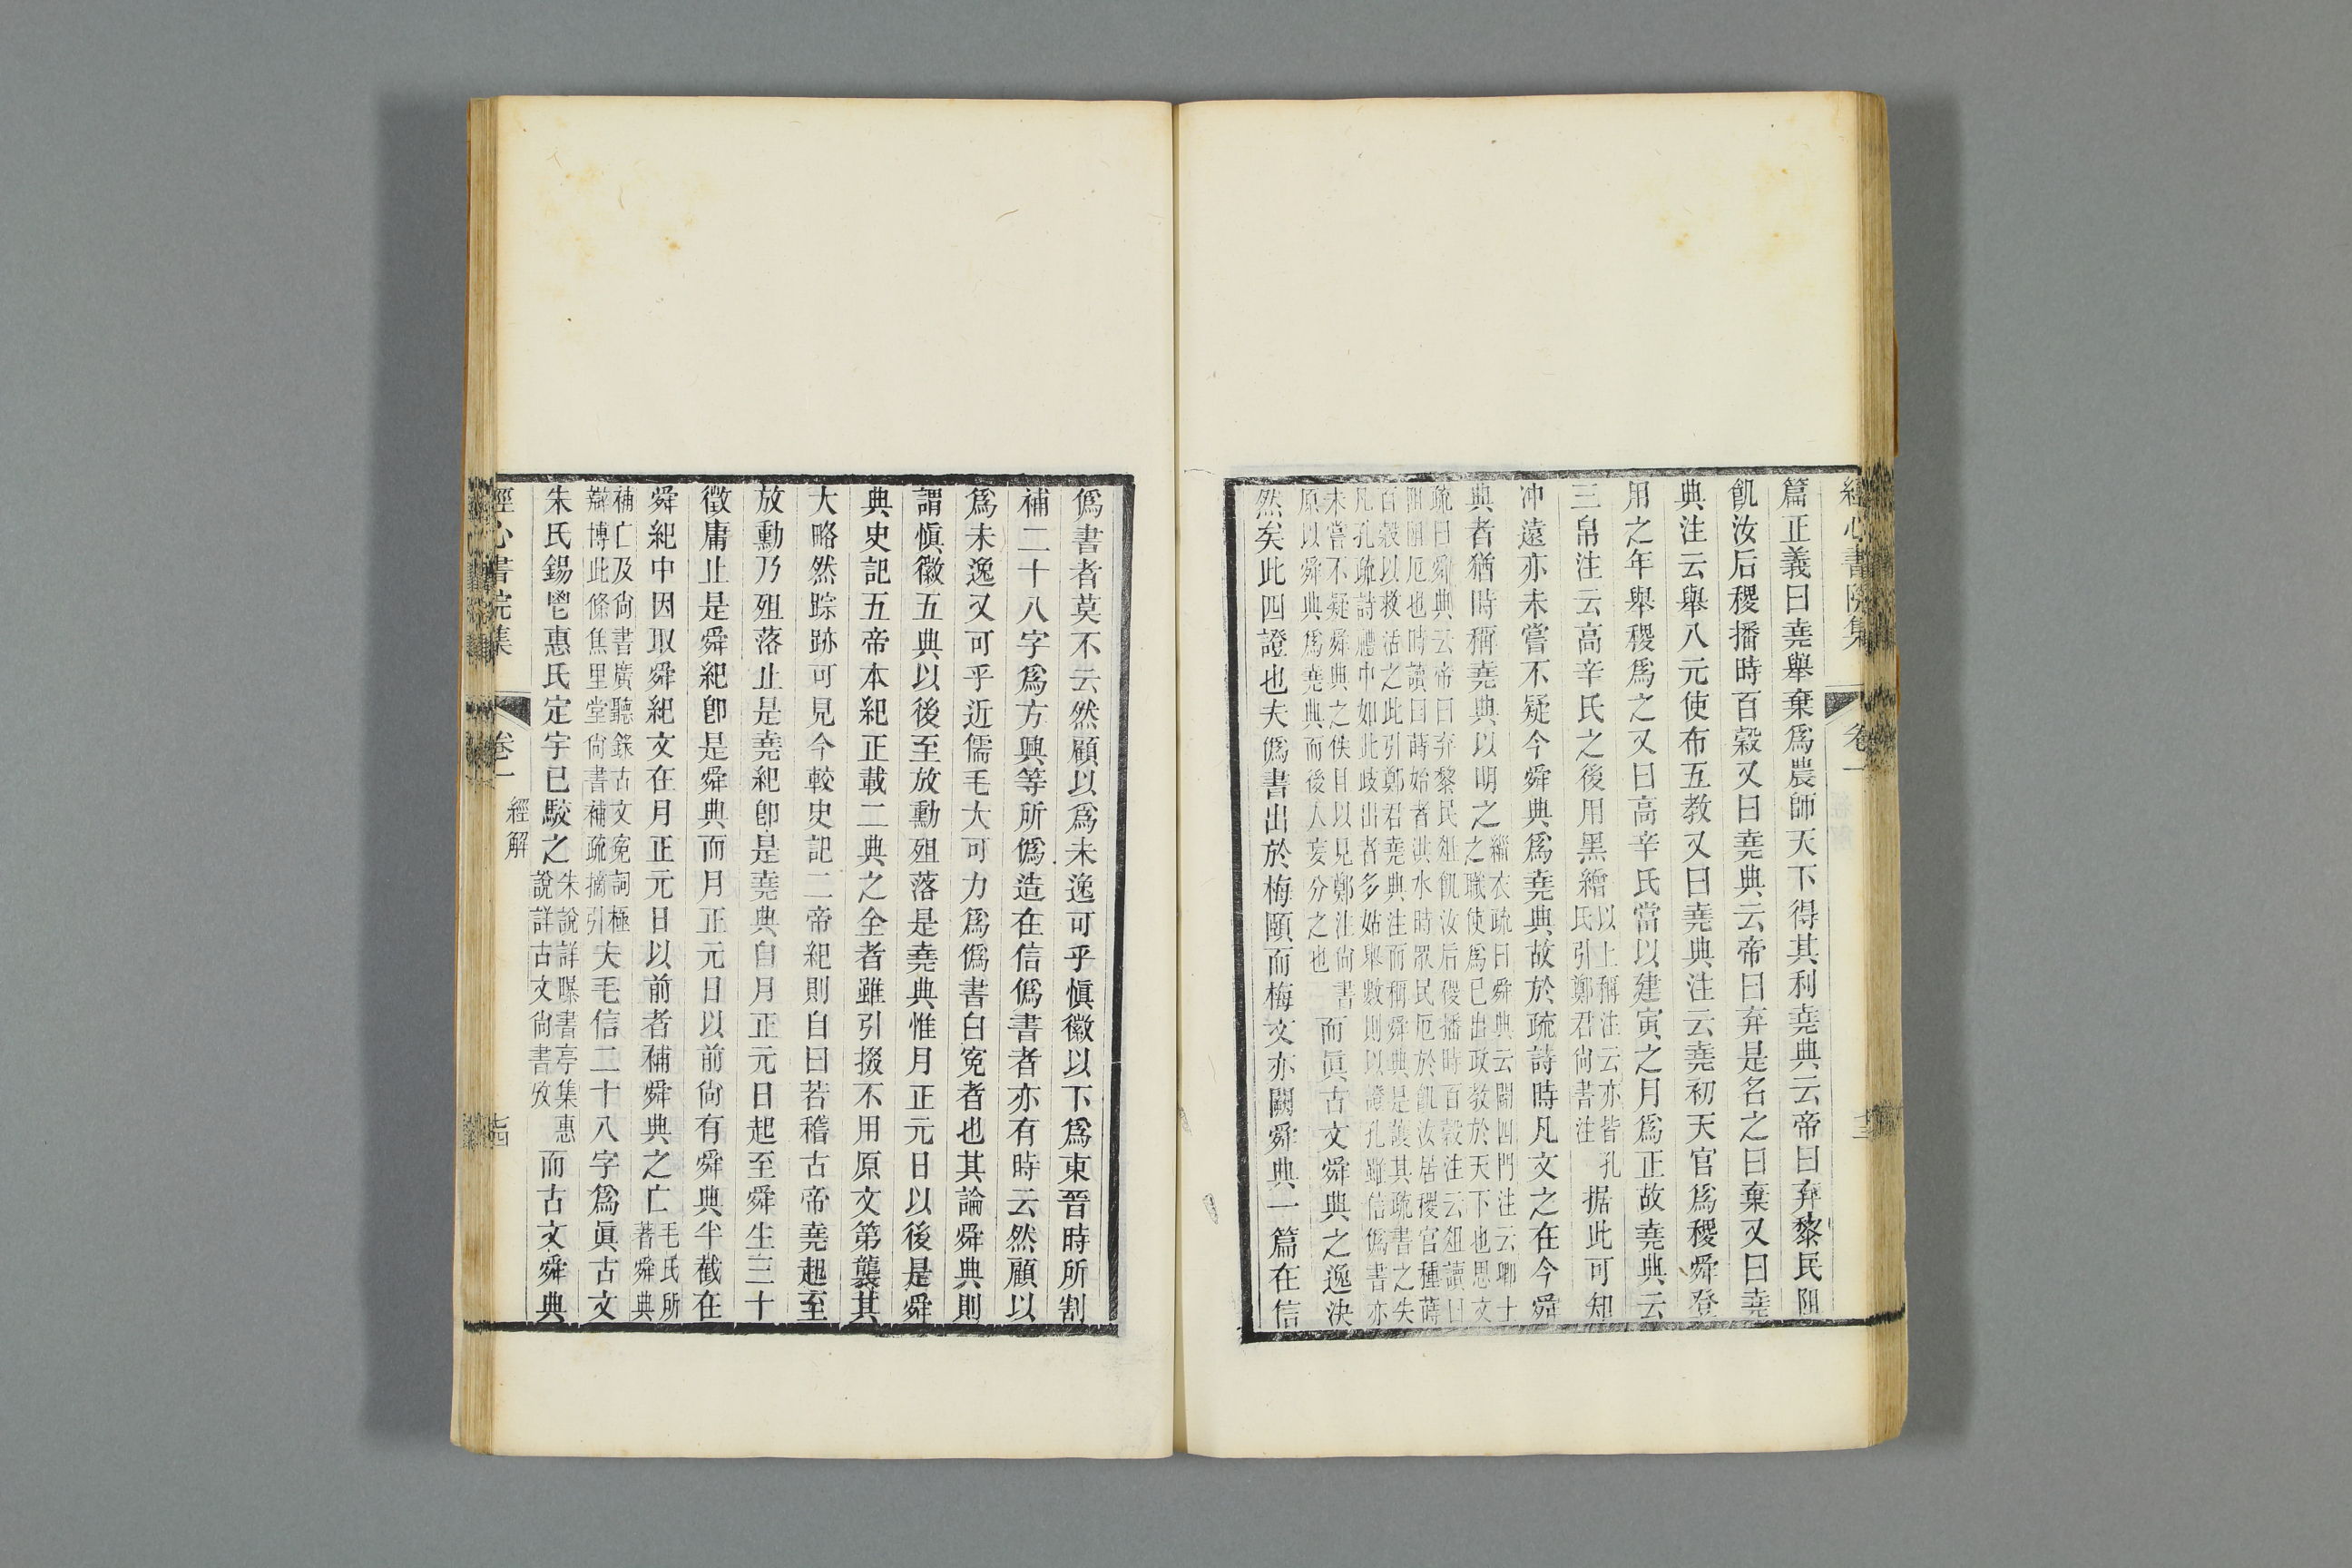 經心書院集　卷一
篇正義曰堯舉棄爲農師天下得其利堯典云帝曰弃黎民阻
飢汝后稷播時百穀又曰堯典云帝曰弃是名之曰棄又曰堯
典注云舉八元使布五教又曰堯典注云堯初天官爲稷舜登
用之年舉稷爲之又曰高辛氏當以建寅之月爲正故堯典云
三帛注云高辛氏之後用黑繒以上稱注云亦皆孔
氏引鄭君尚書注据此可知
沖遠亦未嘗不疑今舜典爲堯典故於疏詩時凡文之在今舜
典者猶時稱堯典以明之緇衣疏曰舜典云闢四門注云卿士
之職使爲已出政教於天下也思文
疏曰舜典云帝曰弃黎民俎飢汝后稷播時百穀注云俎讀曰
阻阻厄也時讀曰蒔始者洪水時眾民厄於飢汝居稷官種蒔
百穀以救活之此引鄭君堯典注而稱舜典是護其疏書之失
凡孔疏詩禮中如此歧出者多姑舉數則以證孔雖信僞書亦
未嘗不疑舜典之佚且以見鄭注尚書
原以舜典爲堯典而後人妄分之也而眞古文舜典之逸決
然矣此四證也夫僞書出於梅頤而梅文亦闕舜典一篇在信
僞書者莫不云然顧以爲未逸可乎愼徽以下爲東晉時所割
補二十八字爲方興等所僞造在信僞書者亦有時云然顧以
爲未逸又可乎近儒毛大可力爲僞書白冤者也其論舜典則
謂愼徽五典以後至放勳殂落是堯典惟月正元日以後是舜
典史記五帝本紀正載二典之全者雖引掇不用原文第襲其
大略然踪跡可見今較史記二帝紀則自曰若稽古帝堯起至
放勳乃殂落止是堯紀卽是堯典自月正元日起至舜生三十
徵庸止是舜紀卽是舜典而月正元日以前尚有舜典半截在
舜紀中因取舜紀文在月正元日以前者補舜典之亡毛氏所
著舜典
補亡及尚書廣聽錄古文冤詞極
辯博此條焦里堂尚書補疏摘引夫毛信二十八字爲眞古文
朱氏錫鬯惠氏定宇已駁之朱說詳曝書亭集惠
說詳古文尚書攷而古文舜典
經心書院集　卷一　經解